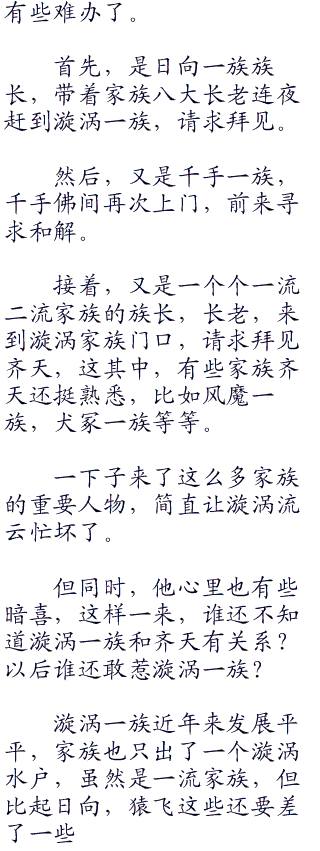 有些难办了。
首先，是日向一族族
长，带着家族八大长老连夜
赶到漩涡一族，请求拜见。
然后，又是千手一族，
千手佛间再次上门，前来寻
求和解。
接着，又是一个个一流
二流家族的族长，长老，来
到漩涡家族门口，请求拜见
齐天，这其中，有些家族齐
天还挺熟悉，比如风魔一
族，犬冢一族等等。
一下子来了这么多家族
的重要人物，简直让漩涡流
云忙坏了。
但同时，他心里也有些
暗喜，这样一来，谁还不知
道漩涡一族和齐天有关系？
以后谁还敢惹漩涡一族？
漩涡一族近年来发展平
平，家族也只出了一个漩涡
水户，虽然是一流家族，但
比起日向，猿飞这些还要差
了一些